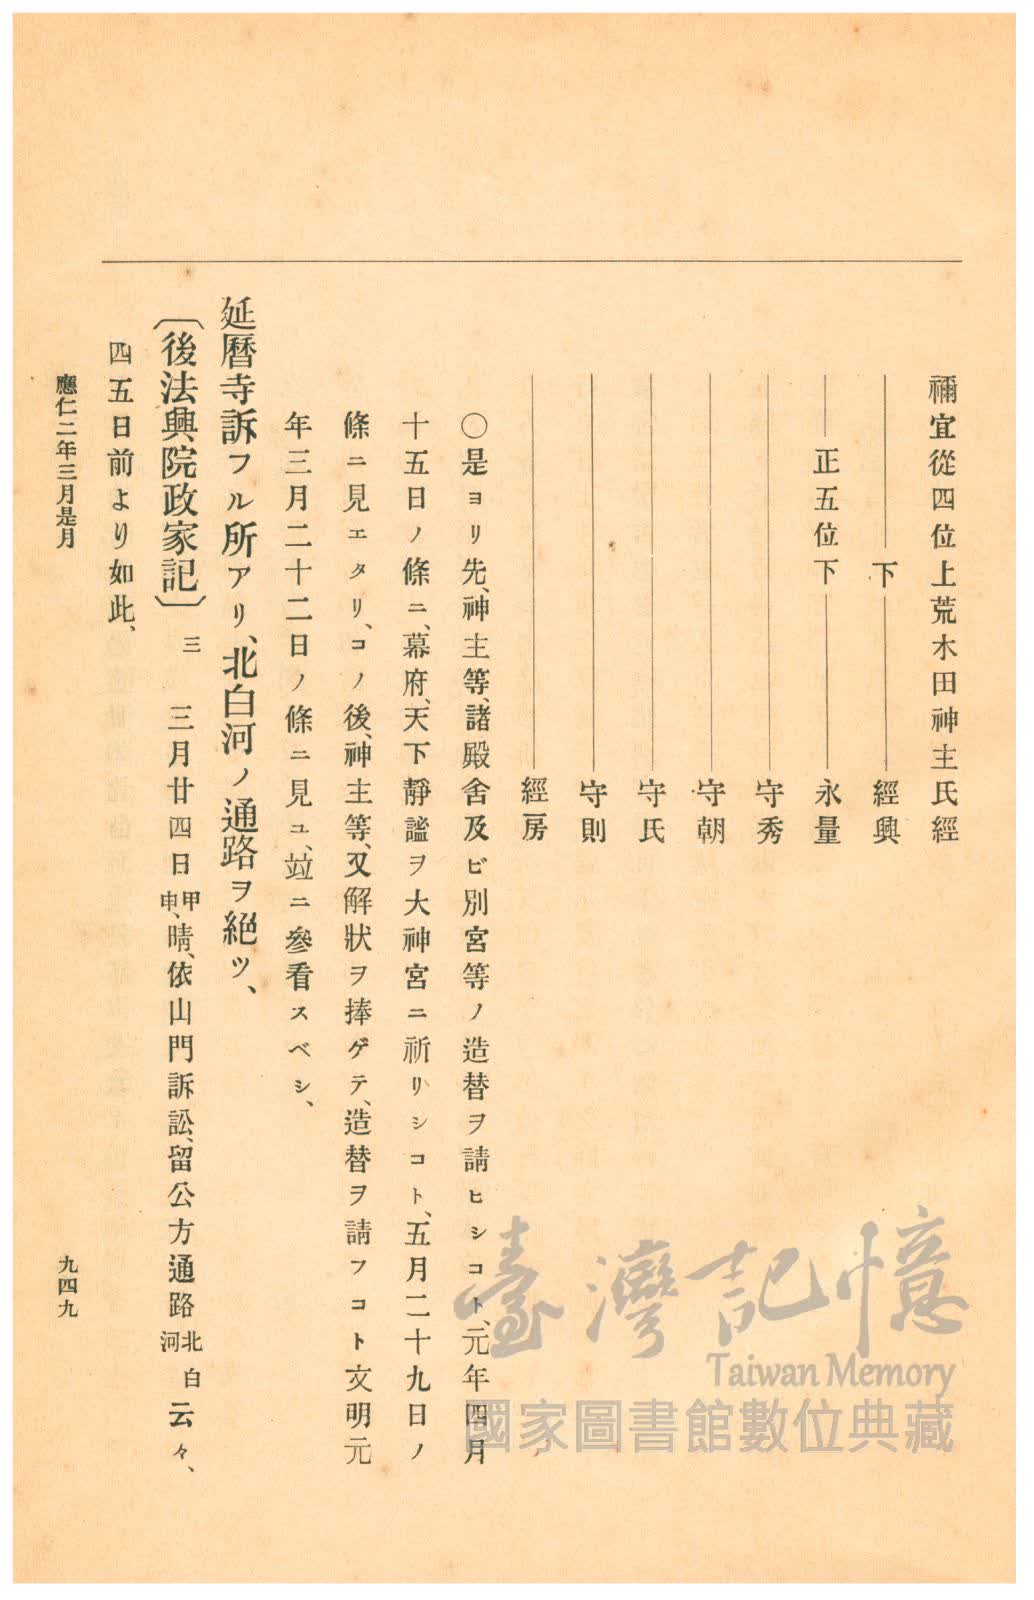 禰宜從四位上荒木田神主氏經
下 經興
正五位下 永量
守秀
守朝
守氏
守則
經房
〇是ヨリ先、神主等、諸殿舍及ビ別宮等ノ造替ヲ請ヒシコト、元年四月
十五日ノ條ニ、幕府、天下靜謐ヲ大神宮ニ祈リシコト、五月二十九日ノ
條ニ見エタリ、コノ後、神主等、又解狀ヲ捧ゲテ、造替ヲ請フコト文明元
年三月二十二日ノ條ニ見ユ、竝ニ參看スベシ、
延曆寺訴フル所アリ、北白河ノ通路ヲ絕ツ、
〔後法興院政家記〕 三 三月廿四日、甲申、晴、依山門訴訟、留公方通路北白河云々、
四五日前より如此、
應仁二年三月是月
九四九
臺灣記憶
Taiwan Memory
國家圖書館數位典藏